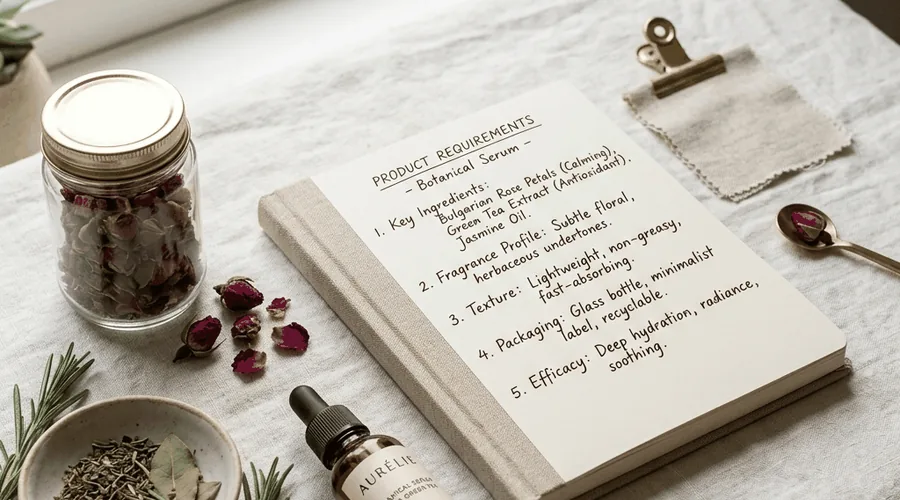 PRODUCT REQUIREMENTS
- Botanical Serum -
1. Key Ingredients:
Bulgarian Rose Petals (Calming),
Green Tea Extract (Antioxidant).
Jasmine Oil.
2. Fragrance Profile: Subtle floral,
herbaceous undertones.
3. Texture: Lightweight, non-greasy,
fast-absorbing.
4. Packaging: Glass bottle, minimalist
label, recyclable.
5. Efficacy: Deep hydration, radiance,
soothing.
AURÉLIE